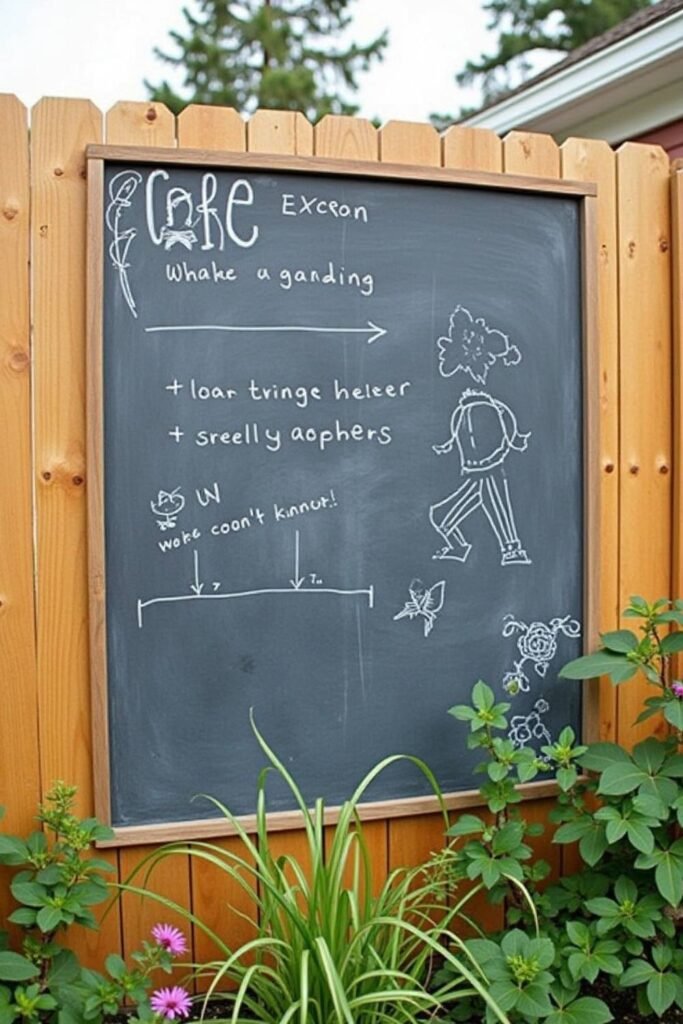 Cafe Exceon
Whake a ganding
+ loar tringe heleer
+ sreelly aophers
W
woke coon't kinnut!